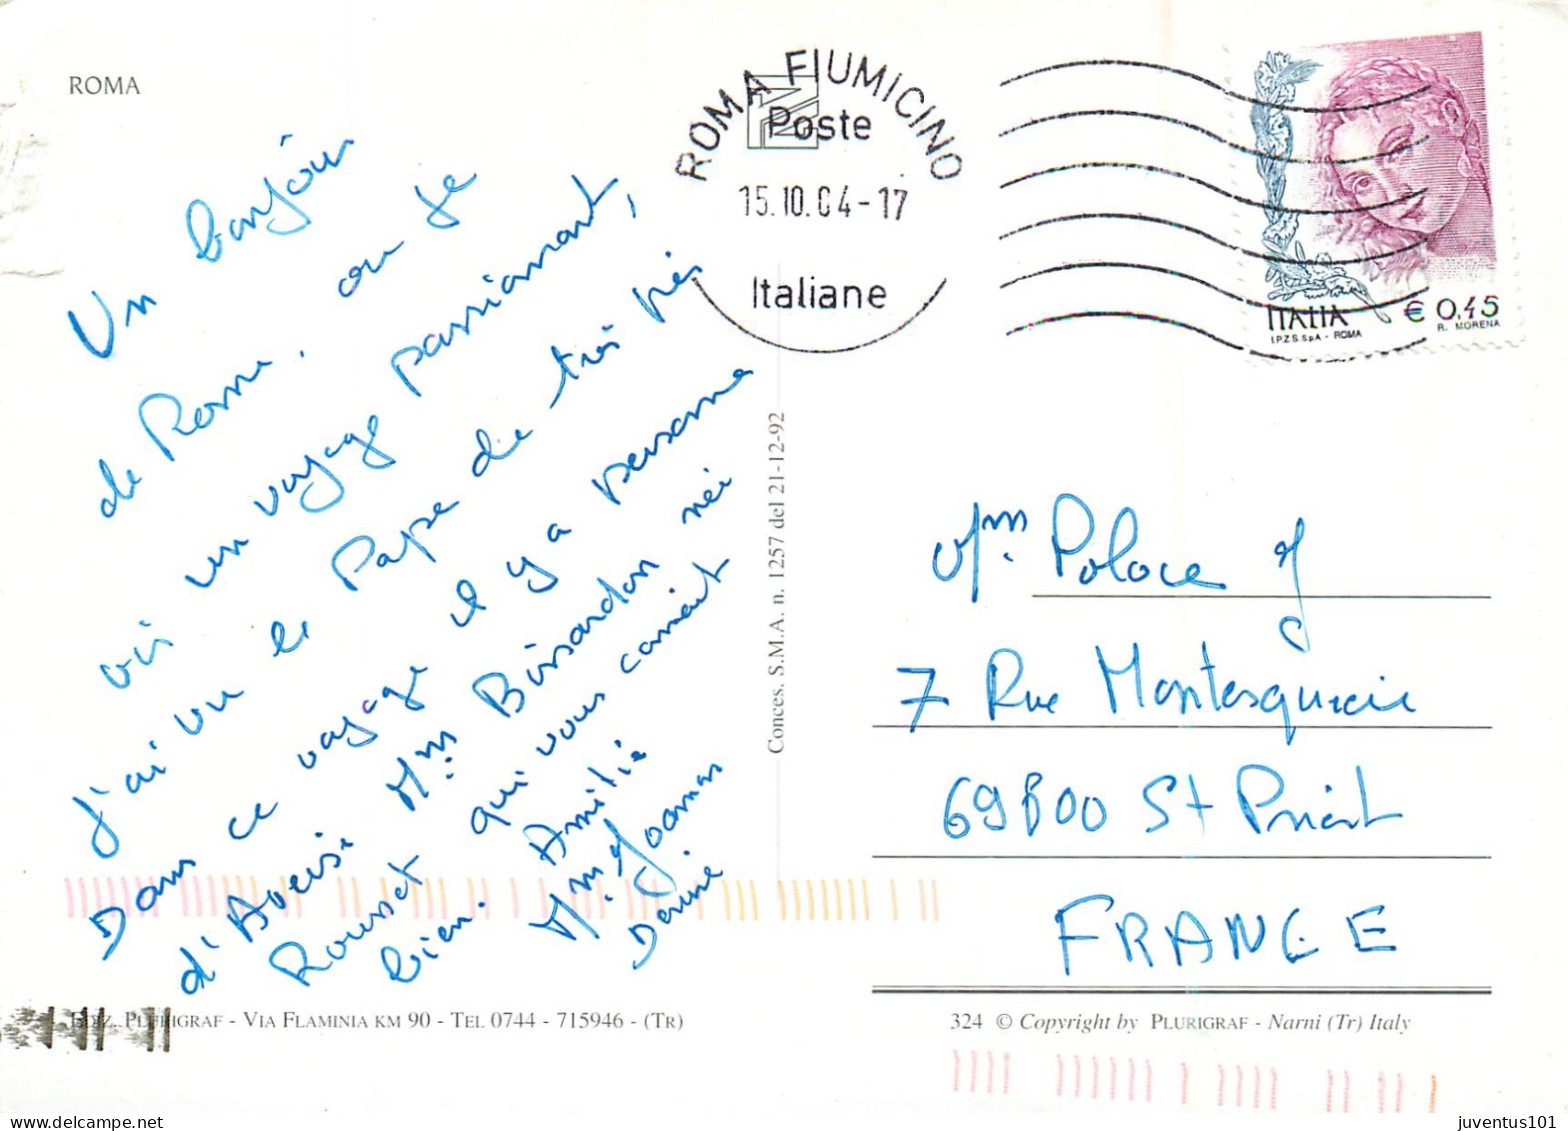 ROMA
Un bonjour
de Rome. ou je
vis un voyage passionant,
j'ai vu le Pape de très près
Dans ce voyage il y a personne
d'Aveise Mm Bissardon née
Rousset qui vous connait
bien. Amitié
Mm Joannas
Denise
ROMA FIUMICINO
Poste
15.10.04-17
Italiane
ITALIA € 0,45
I.P.Z.S. S.p.A. - ROMA R. MORENA
Conces. S.M.A. n. 1257 del 21-12-92
Mm Polace J
7 Rue Montesquieu
69800 St Priest
FRANCE
Ediz. Plurigraf - Via Flaminia km 90 - Tel 0744 - 715946 - (Tr)
324 © Copyright by Plurigraf - Narni (Tr) Italy
juventus101